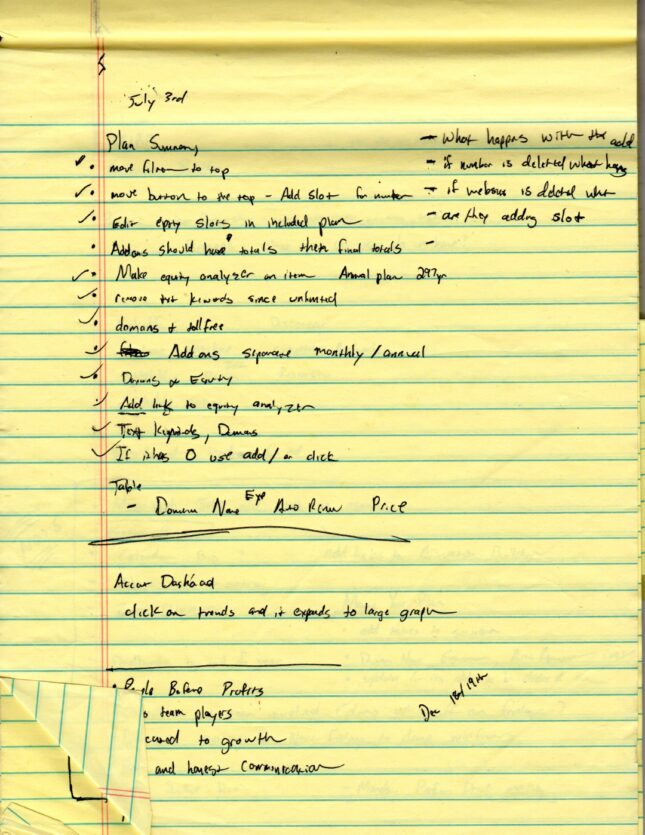 July 3rd
Plan Summary
move filter to top
move button to the top - Add slot for number
Edit epty slots in included plan
Addons should have totals then final totals
Make equity analyzer an item Annual plan 297yr
remove txt kewords since unlimited
domans + tollfree
Addons separate monthly/annual
Domans & Equity
Add link to equity analyzer
Text Keywords, Domans
If it has 0 use add/on click
- What happens with the add
- if number is deleted what happs
- if website is deleted what
- are they adding slot
-
Table
- Domain Name Exp Auto Renew Price
Account Dashboad
click on trends and it expands to large graph
Before Profits
team players
to growth
and honest communication
Dec 18th/19th